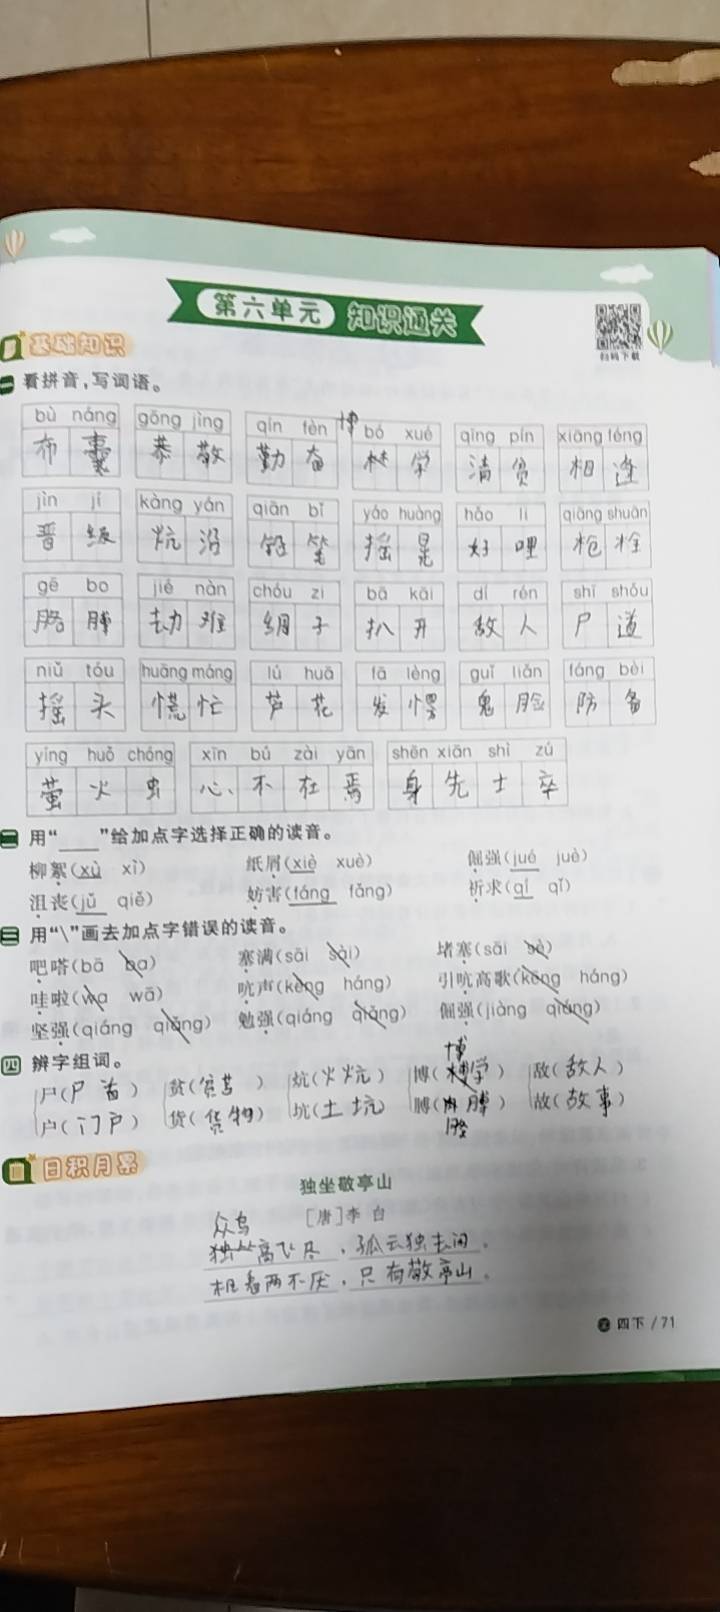 第六单元 知识通关
扫码下载
基础知识
一 看拼音,写词语。
bù náng gōng jìng qín fèn bó xué qīng pín xiāng féng
博
布 囊 恭 敬 勤 奋 学 清 贫 相 逢
jìn jí kàng yán qiān bǐ yáo huàng hǎo li qiāng shuān
晋 级 炕 沿 铅 笔 摇 晃 好 哩 枪 栓
gē bo jié nàn chóu zi bā kāi dí rén shī shǒu
胳 膊 劫 难 绸 子 扒 开 敌 人 尸 道
niǔ tóu huāng máng lú huā fā lèng guǐ liǎn fáng bèi
摇 头 慌 忙 芦 花 发 愣 鬼 脸 防 备
yíng huǒ chóng xīn bú zài yān shēn xiān shì zú
萤 火 虫 心 不 在 焉 身 先 士 卒
二 用“____”给加点字选择正确的读音。
柳絮(xù xì) 纸屑(xiè xuè) 倔强(jué juè)
沮丧(jǔ qiě) 妨害(fáng fāng) 祈求(qí qǐ)
三 用“\”画去加点字错误的读音。
吧嗒(bā ba) 塞满(sāi sài) 堵塞(sāi sè)
哇啦(wa wā) 吭声(kēng háng) 引吭高歌(kēng háng)
坚强(qiáng qiǎng) 勉强(qiáng qiǎng) 倔强(jiàng qiáng)
四 辨字组词。
博
尸( ) 贫(贫苦) 炕(火炕) 博(学) 敌(敌人)
户(门户) 货(货物) 坑(土坑) 膊(膊) 故(故事)
胳
日积月累
独坐敬亭山
[唐]李白
众鸟
独高飞尽,孤云独去闲。
相看两不厌,只有敬亭山。
四下/71